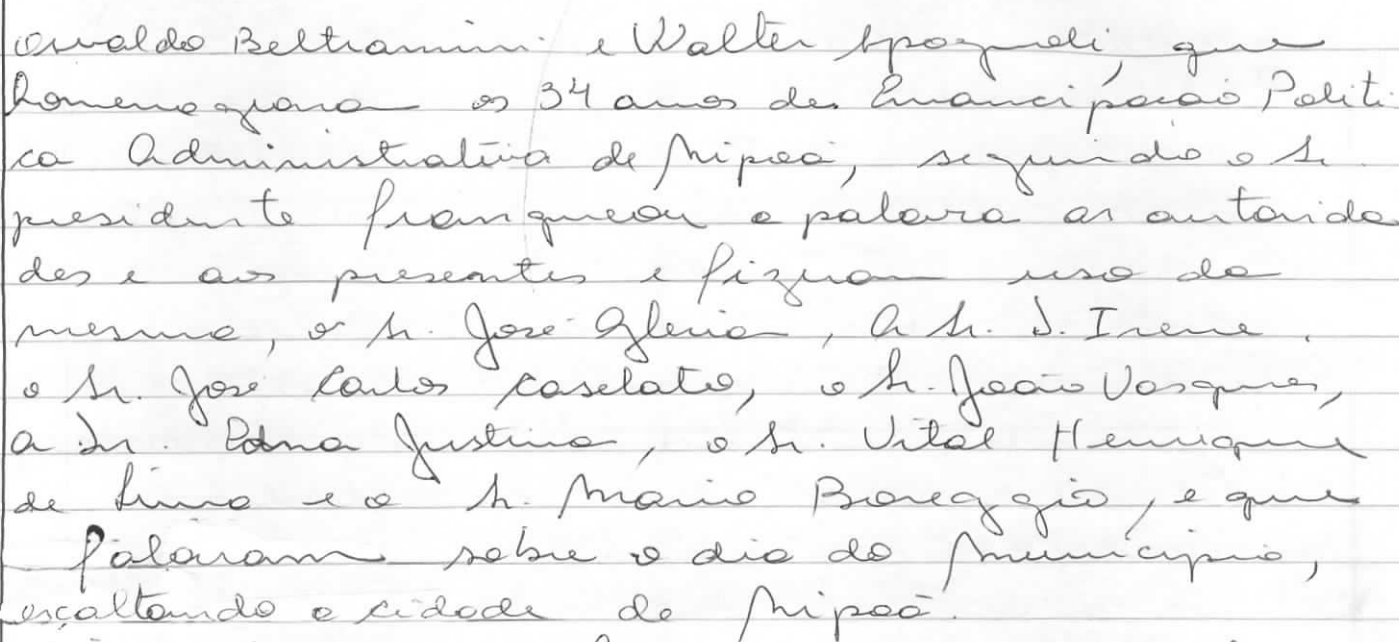 Osvaldo Beltramini e Walter Spagnoli, que
homenageara os 34 anos de Emancipação Politi
ca Administrativa de Nipoã, seguindo o Sr.
presidente franqueou a palavra as autorida
des e aos presentes e fizeram uso da
mesma, o Sr. José Gleria, A Sr. D. Irene.
o Sr. José Carlos Caselato, o Sr. João Vasques,
a Sr. Edna Justino, o Sr. Vital Henrique
de Lima e o Sr. Mario Boreggio, e que
falaram sobre o dia do Municipio,
esçaltando a cidade de Nipoã.